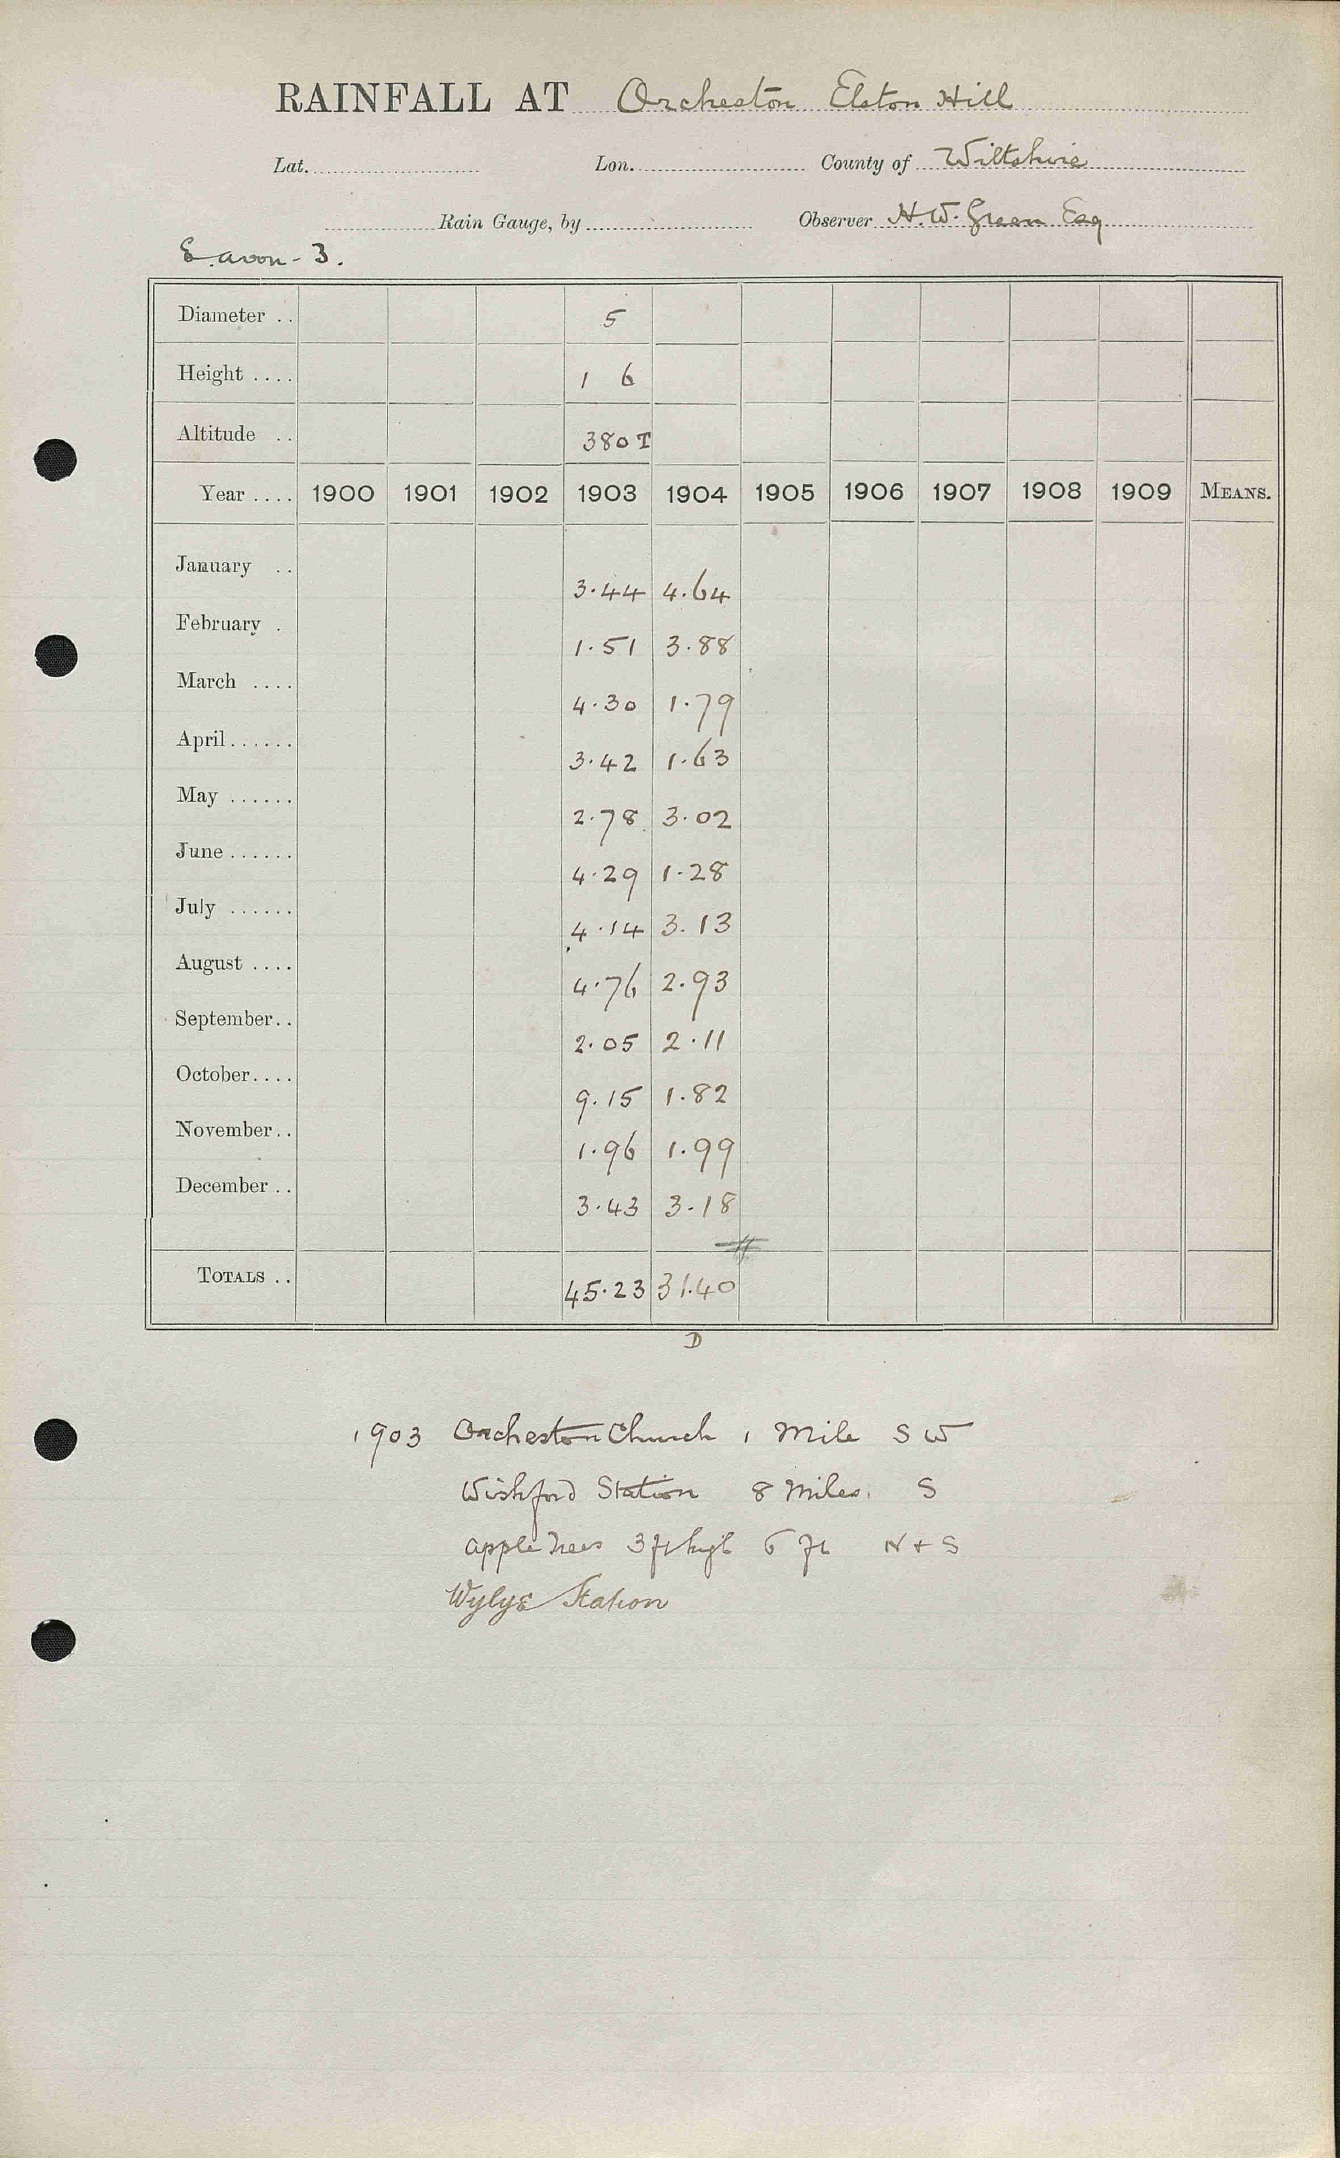 RAINFALL AT Orcheston Elston Hill
Lat. Lon. County of Wiltshire
Rain Gauge, by Observer H.W. Green Esq
E. Avon - 3.
Diameter .. 5
Height .... 1 6
Altitude .. 380 T
Year .... 1900 1901 1902 1903 1904 1905 1906 1907 1908 1909 MEANS.
January .. 3.44 4.64
February . 1.51 3.88
March .... 4.30 1.79
April ...... 3.42 1.63
May ...... 2.78 3.02
June ...... 4.29 1.28
July ...... 4.14 3.13
August .... 4.76 2.93
September .. 2.05 2.11
October .... 9.15 1.82
November .. 1.96 1.99
December .. 3.43 3.18
TOTALS .. 45.23 31.40
D
1903 Orcheston Church 1 Mile S W
Wishford Station 8 Miles S
apple trees 3 ft high 6 ft N + S
Wylye Station